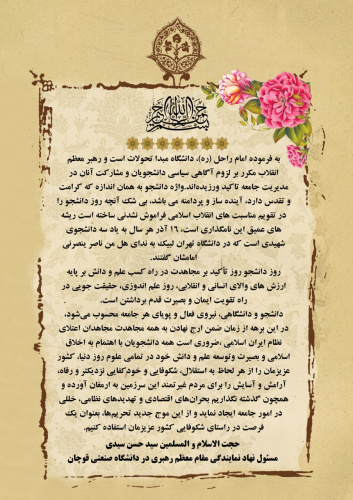 بسم الله الرحمن الرحیم
به فرموده امام راحل (ره)، دانشگاه مبدا تحولات است و رهبر معظم
انقلاب مکرر بر لزوم آگاهی سیاسی دانشجویان و مشارکت آنان در
مدیریت جامعه تاکید ورزیده‌اند.واژه دانشجو به همان اندازه که کرامت
و تقدس دارد، آینده ساز و پردامنه می باشد، بی شک آنچه روز دانشجو را
در تقویم مناسبت های انقلاب اسلامی فراموش نشدنی ساخته است ریشه
های عمیق این نامگذاری است، ۱۶ آذر هر سال به یاد سه دانشجوی
شهیدی است که در دانشگاه تهران لبیک به ندای هل من ناصر ینصرنی
امامشان گفتند.
روز دانشجو روز تأکید بر مجاهدت در راه کسب علم و دانش بر پایه
ارزش های والای انسانی و انقلابی، روز علم اندوزی، حقیقت جویی در
راه تقویت ایمان و بصیرت قدم برداشتن است.
دانشجو و دانشگاهی، نیروی فعال و پویای هر جامعه محسوب می‌شود،
در این برهه از زمان ضمن ارج نهادن به همه مجاهدت مجاهدان اعتلای
نظام ایران اسلامی ،ضروری است همه دانشجویان با اهتمام به اخلاق
اسلامی و بصیرت وتوسعه علم و دانش خود در تمامی علوم روز دنیا، کشور
عزیزمان را از هر لحاظ به استقلال، شکوفایی و خودکفایی نزدیکتر و رفاه،
آرامش و آسایش را برای مردم غیرتمند این سرزمین به ارمغان آورده و
همچون گذشته نگذاریم بحران‌های اقتصادی و تهدیدهای نظامی، خللی
در امور جامعه ایجاد نماید و از این موج جدید تحریم‌ها، بعنوان یک
فرصت در راستای شکوفایی کشور عزیزمان استفاده کنیم.
حجت الاسلام و المسلمین سید حسن سیدی
مسئول نهاد نمایندگی مقام معظم رهبری در دانشگاه صنعتی قوچان